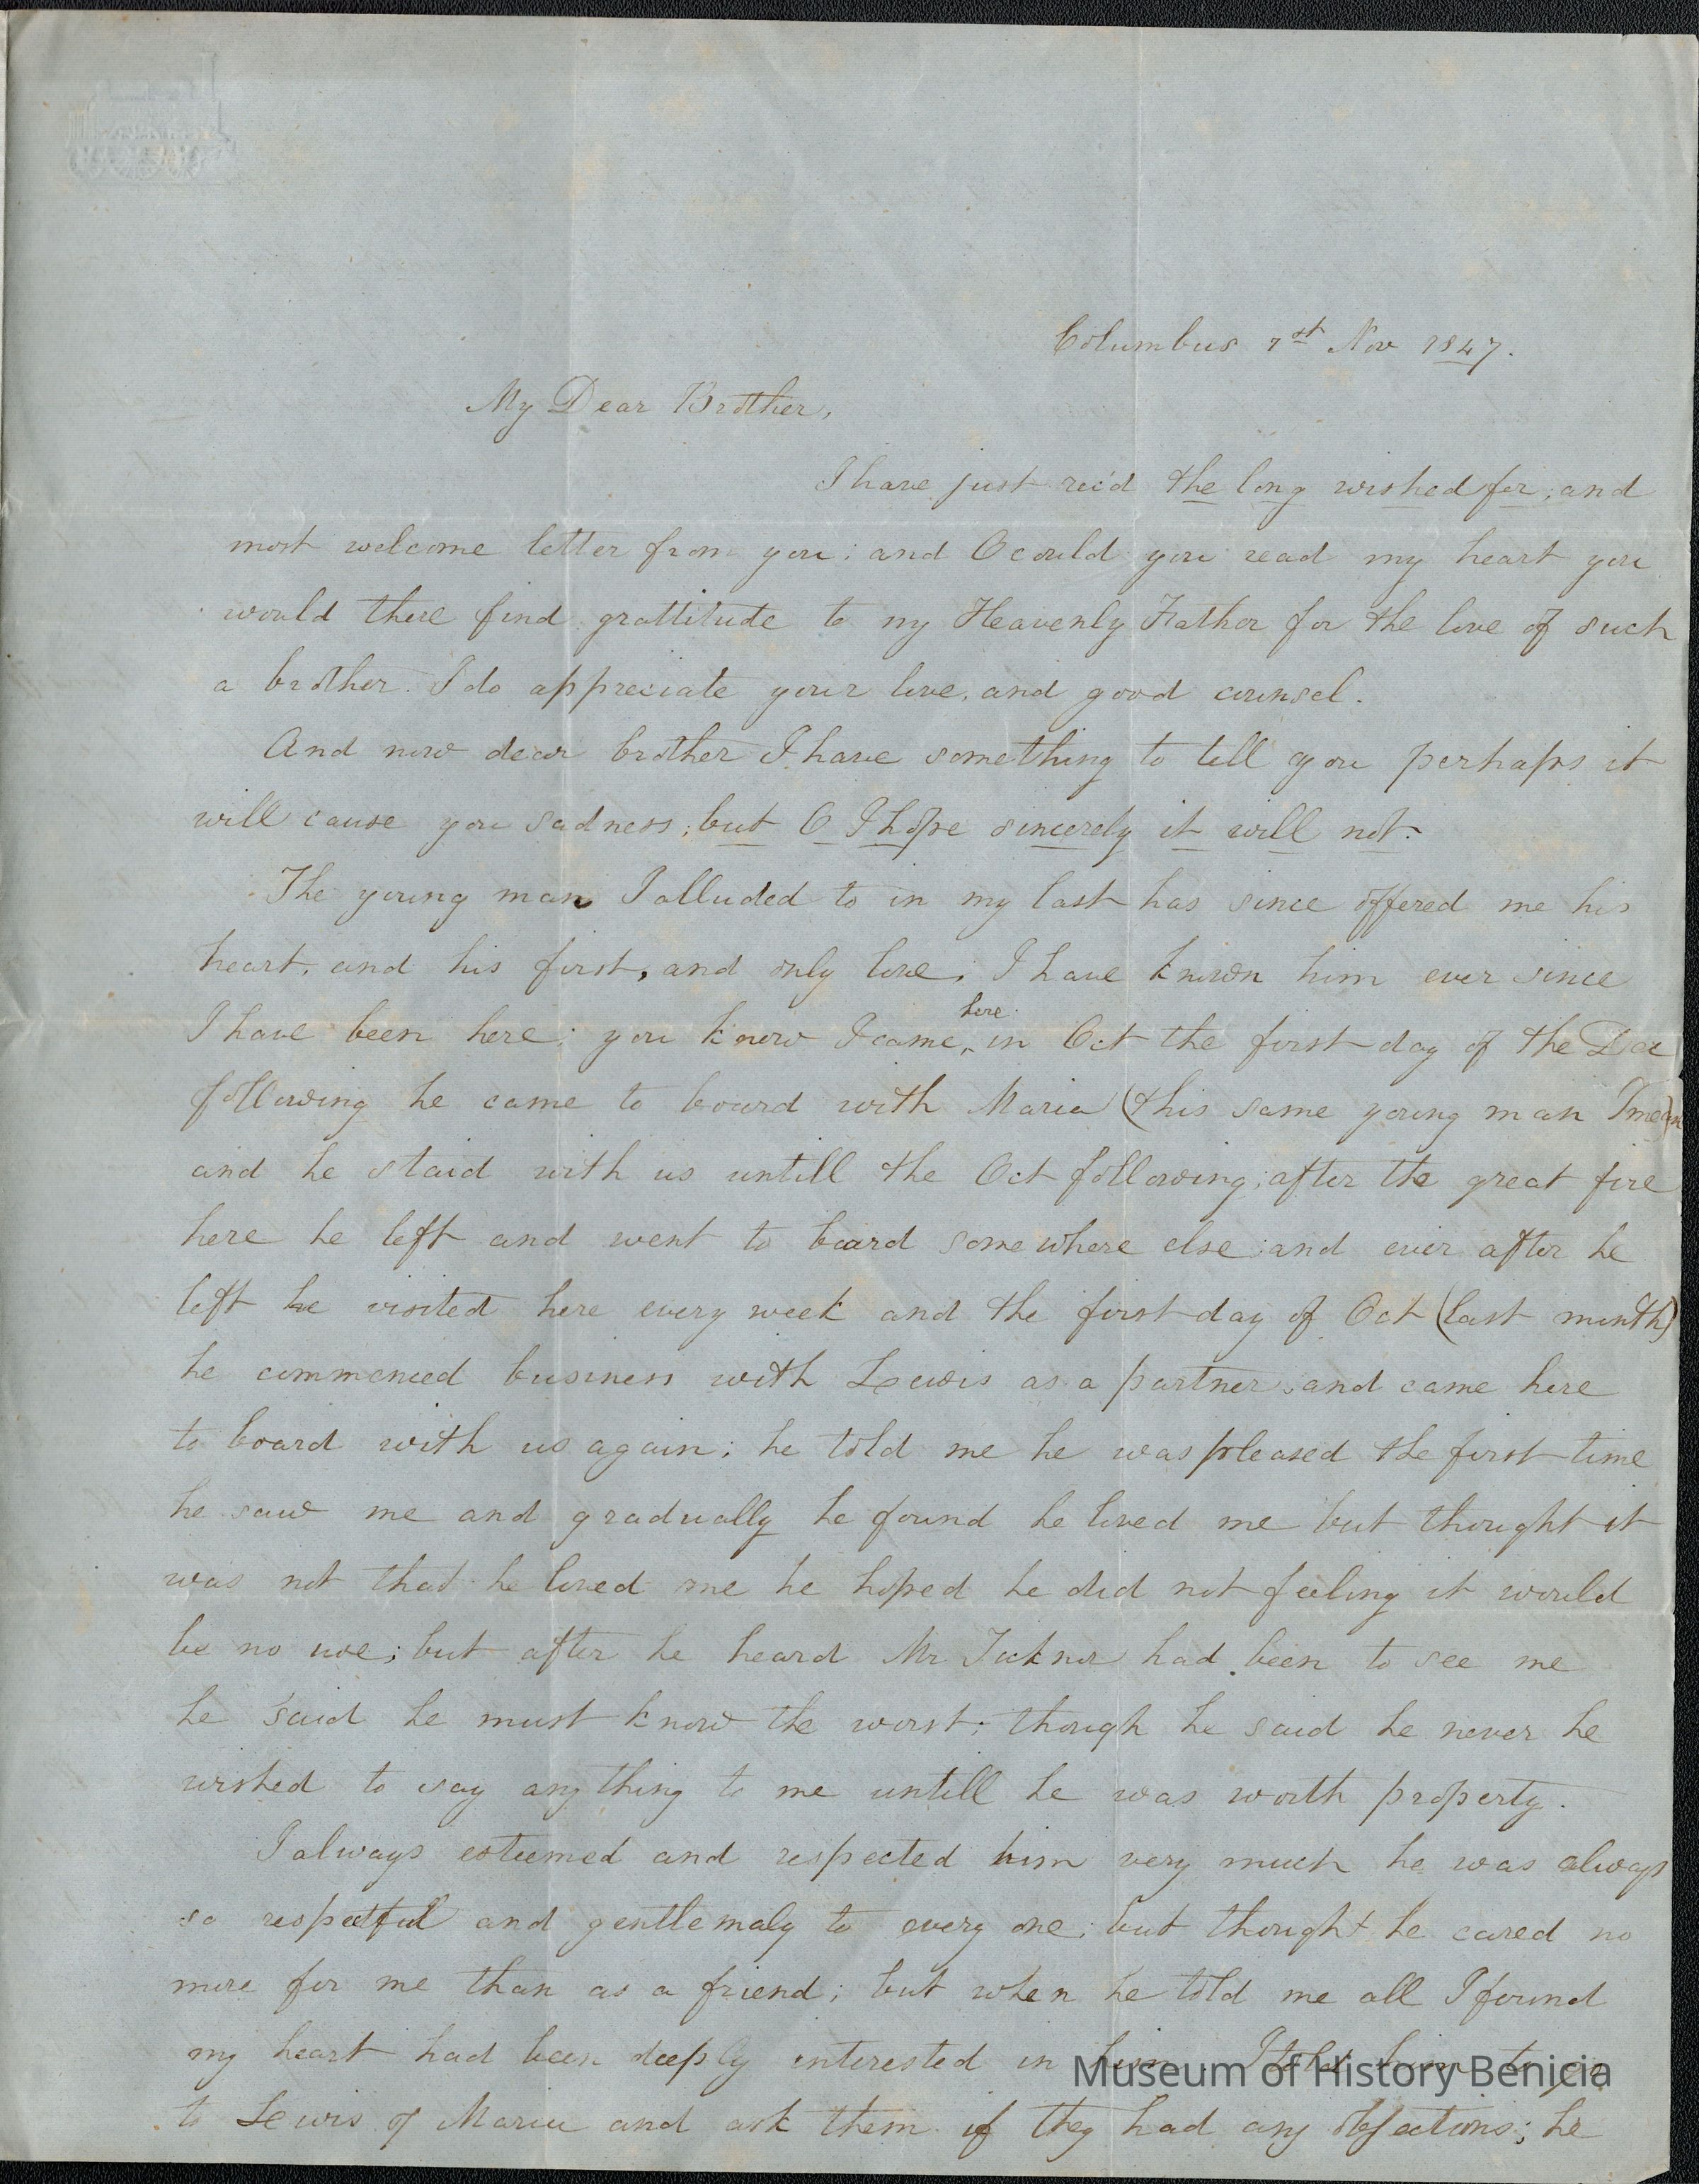 Columbus 1st Nov 1847.
My Dear Brother,
I have just rec'd the long wished for, and
most welcome letter from you; and O could you read my heart you
would there find grattitude to my Heavenly Father for the love of such
a brother. I do appreciate your love, and good counsel.
And now dear brother I have something to tell you perhaps it
will cause you sadness; but O I hope sincerely it will not.
The young man I alluded to in my last has since offered me his
heart, and his first, and only love; I have known him ever since
I have been here; you know I came here in Oct the first day of the Dec
following he came to board with Maria (this same young man I mean)
and he staid with us untill the Oct following; after the great fire
here he left and went to board some where else; and ever after he
left he visited here every week and the first day of Oct (last month)
he commenced business with Lewis as a partner, and came here
to board with us again; he told me he was pleased the first time
he saw me and gradually he found he loved me but thought it
was not that he loved me he hoped he did not feeling it would
be no use; but after he heard Mr Ticknor had been to see me
he said he must know the worst; though he said he never he
wished to say any thing to me untill he was worth property.
I always esteemed and respected him very much he was always
so respectful and gentlemaly to every one; but thought he cared no
more for me than as a friend; but when he told me all I found
my heart had been deeply interested in him I told him to go
to Lewis & Maria and ask them if they had any objections; he
Museum of History Benicia